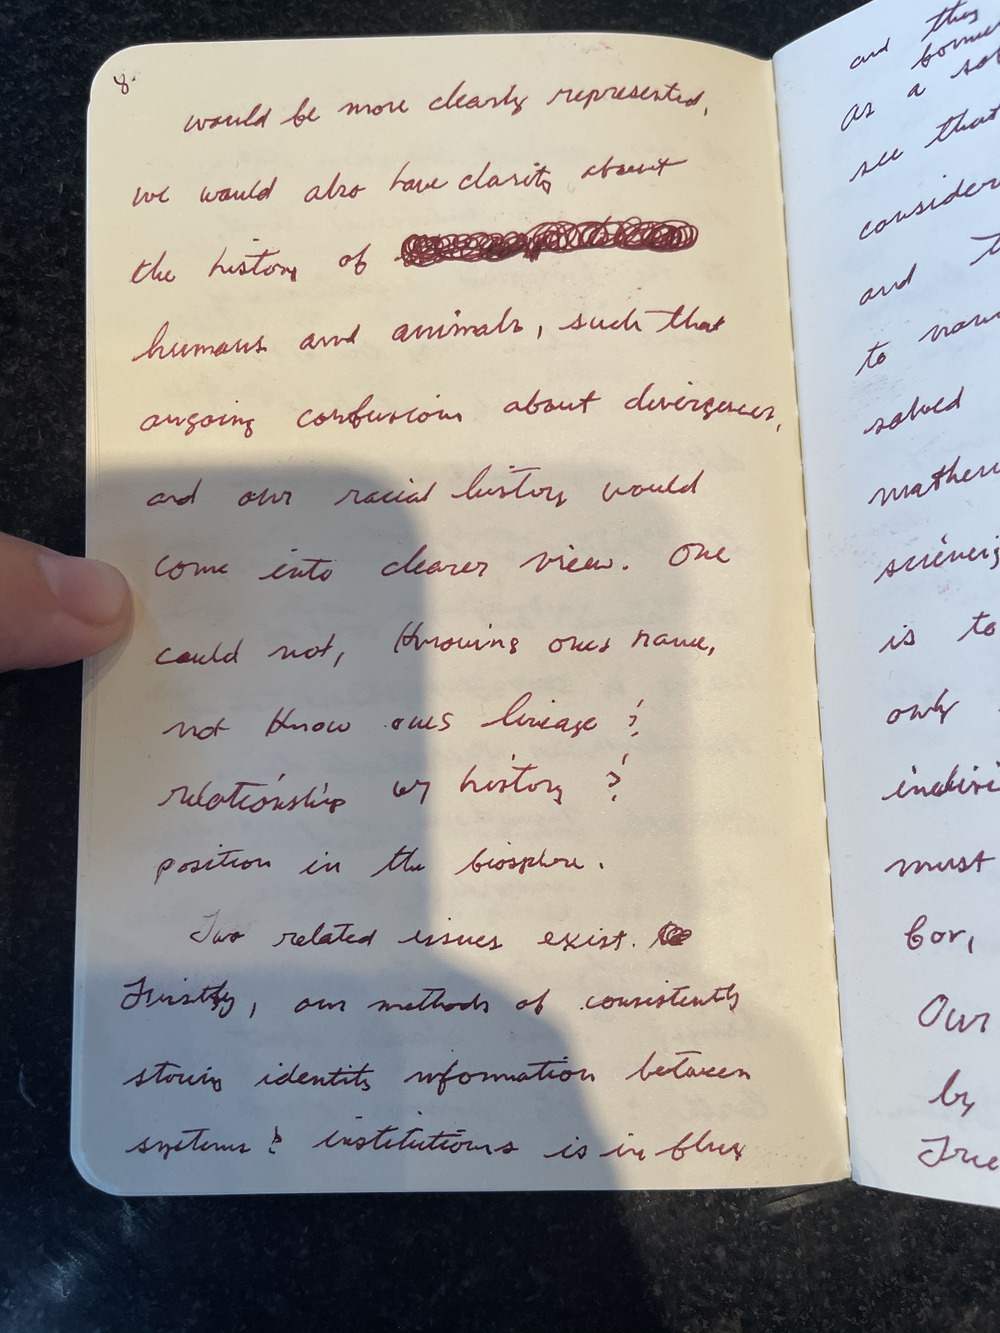 8.
would be more clearly represented,
we would also have clarity about
the history of
humans and animals, such that
ongoing confusion about divergences,
and our racial history would
come into clearer view. One
could not, knowing ones name,
not know ones lineage &
relationship w/ history &
position in the biosphere.
Two related issues exist.
Firstly, our methods of consistently
storing identity information between
systems & institutions is in flux
and they
as a
see that
consider
and
to
solved
is to
only
must
for,
Our
by